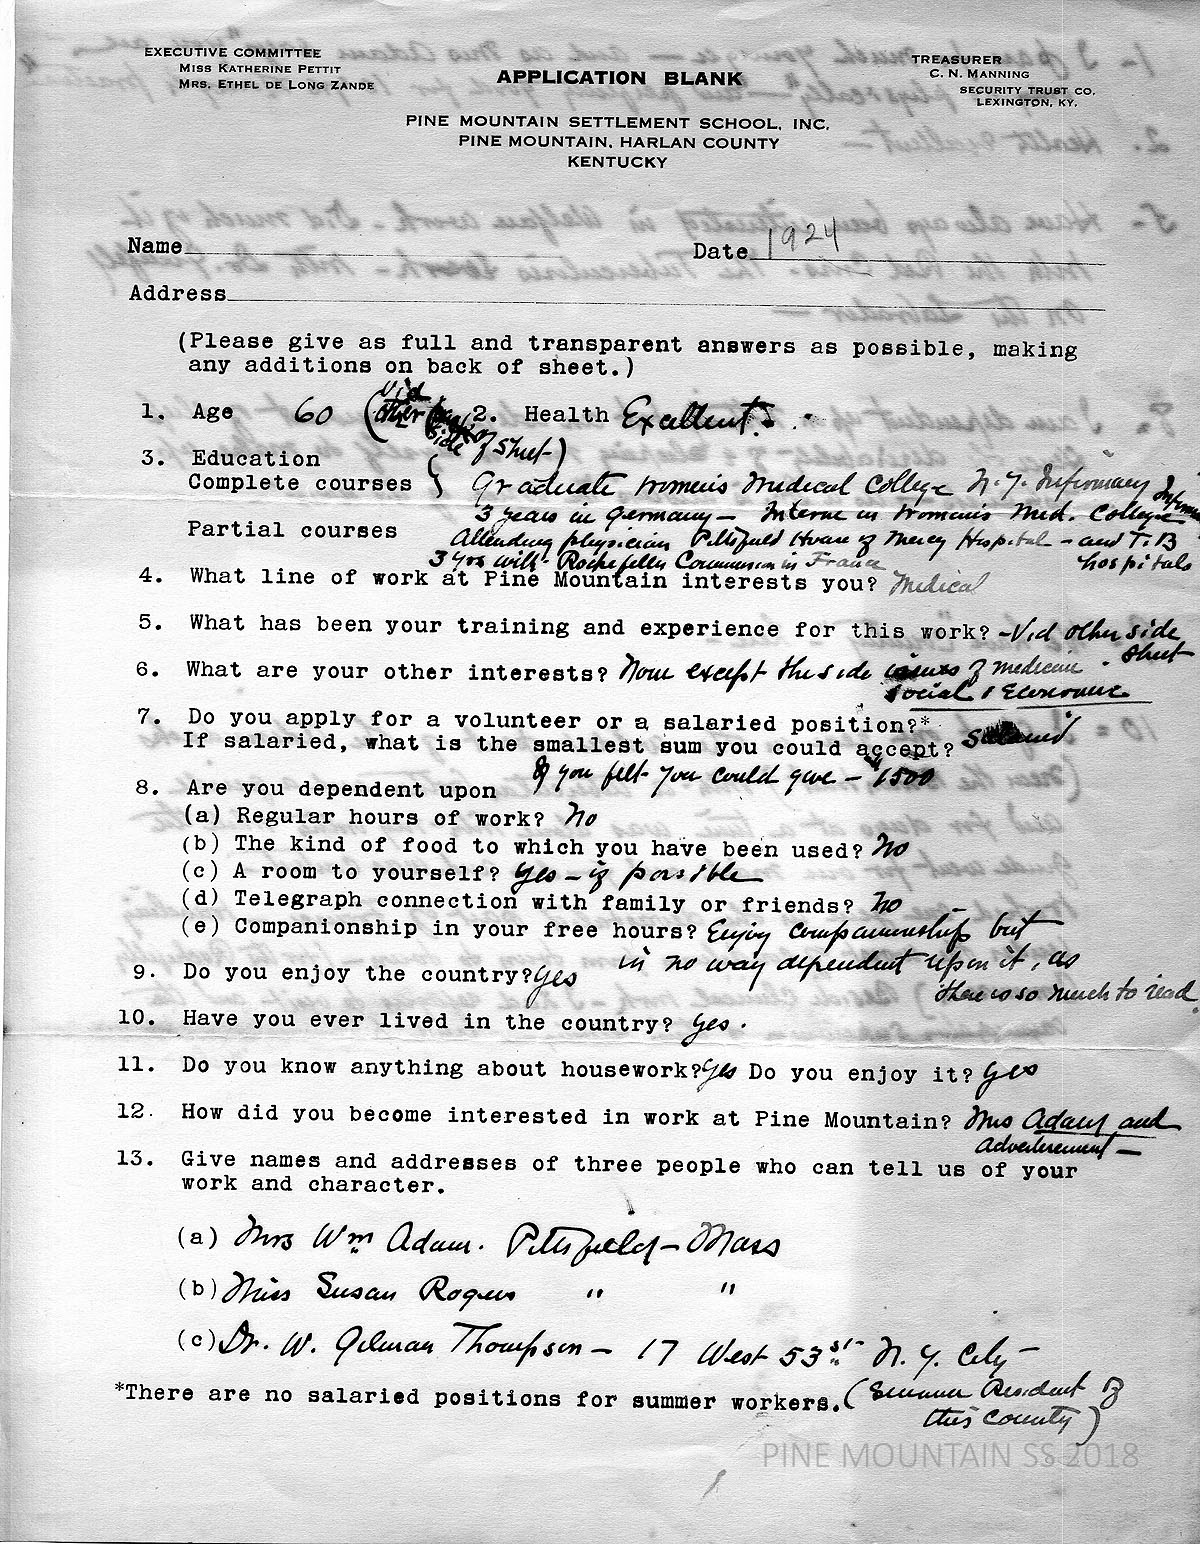 EXECUTIVE COMMITTEE
MISS KATHERINE PETTIT
MRS. ETHEL DE LONG ZANDE
TREASURER
C. N. MANNING
SECURITY TRUST CO.
LEXINGTON, KY.
APPLICATION BLANK
PINE MOUNTAIN SETTLEMENT SCHOOL, INC.
PINE MOUNTAIN, HARLAN COUNTY
KENTUCKY
Name Date 1924
Address
(Please give as full and transparent answers as possible, making
any additions on back of sheet.)
1. Age 60 (Vid other side of Sheet) 2. Health Excellent.
3. Education
Complete courses } Graduate Women's Medical College N.Y. Infirmary
3 years in Germany — Interne in Women's Med. College
Partial courses Attending physician Pittsfield House of Mercy Hospital — and T.B hospitals
3 yrs with Rockefeller Commission in France
4. What line of work at Pine Mountain interests you? Medical
5. What has been your training and experience for this work? – Vid other side Sheet
6. What are your other interests? None except the side issues of medicine.
Social & Economic
7. Do you apply for a volunteer or a salaried position?* Salaried
If salaried, what is the smallest sum you could accept?
If you felt you could give — $1500
8. Are you dependent upon
(a) Regular hours of work? No
(b) The kind of food to which you have been used? No
(c) A room to yourself? Yes – if possible
(d) Telegraph connection with family or friends? No
(e) Companionship in your free hours? Enjoy companionship but
in no way dependent upon it, as
there is so much to read.
9. Do you enjoy the country? Yes
10. Have you ever lived in the country? Yes.
11. Do you know anything about housework? Yes Do you enjoy it? Yes
12. How did you become interested in work at Pine Mountain? Mrs Adams and
Advertisement —
13. Give names and addresses of three people who can tell us of your
work and character.
(a) Mrs Wm Adam. Pittsfield — Mass
(b) Miss Susan Rogers " "
(c) Dr. W. Gilman Thompson — 17 West 53st N. Y. City —
*There are no salaried positions for summer workers. (Summer Resident of
this County)
PINE MOUNTAIN SS 2018